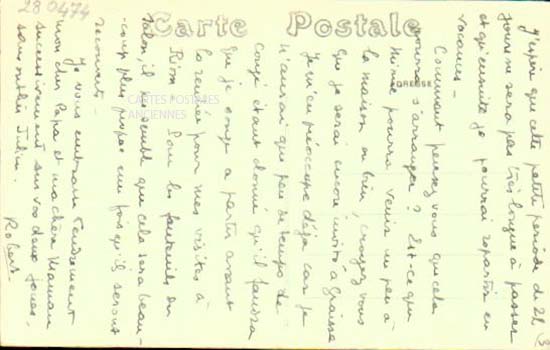 280474
Carte Postale
ADRESSE
CARTES POSTALES
ANCIENNES
J'espère que cette petite période de 2h
jours ne sera pas très longue à passer
et qu'ensuite je pourrai repartir en
vacances.
Comment pensez vous que cela
pourra s'arranger ? Est-ce que
mimie pourra venir un peu à
la maison ou bien, croyez vous
que je serai encore invité à Graisse
Je m'en préoccupe déjà car je
n'aurai que peu de temps de
congé étant donné qu'il faudra
que je songe à partir avant
la rentrée pour mes visites à
Riom. Pour les fauteuils du
salon, il me semble que cela sera beau-
-coup plus propre une fois qu'ils seront
recouverts.
Je vous embrasse tendrement
mon cher Papa et ma chère Maman
successivement sur vos deux joues.
sans oublier Julien.
Robert.